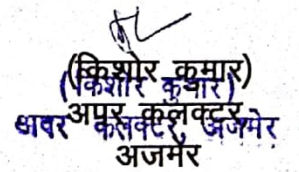 (किशोर कुमार)
(किशोर कुमार)
अपर कलक्टर
अवर कलक्टर, अजमेर
अजमेर